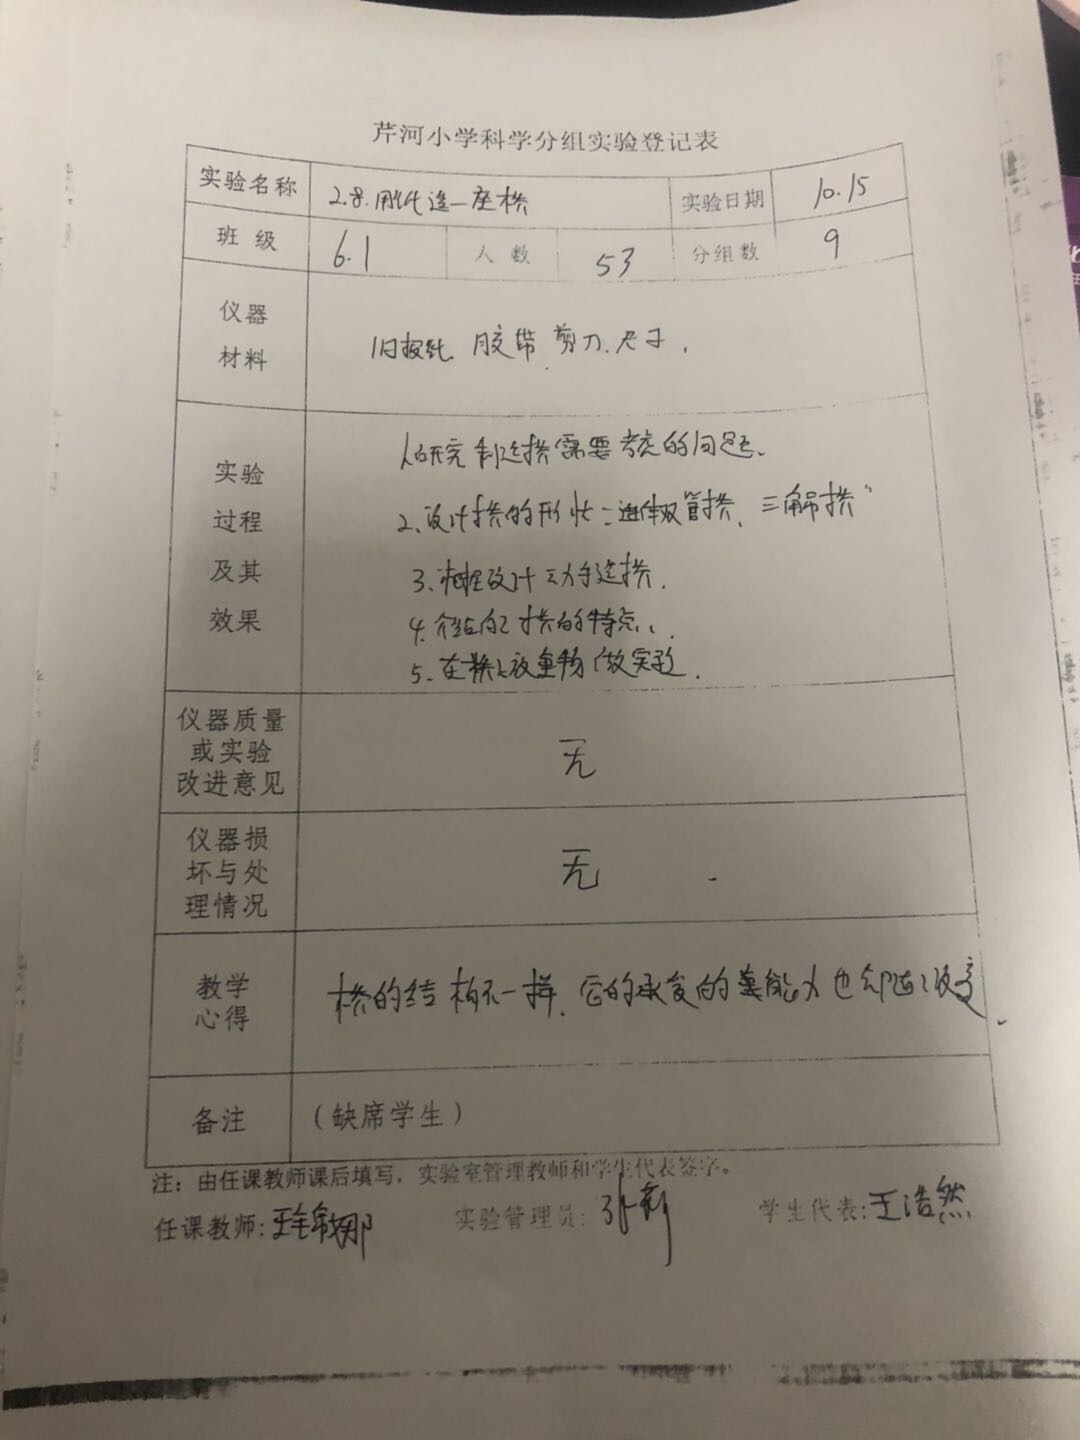 芹河小学科学分组实验登记表
实验名称 2.8.用纸造一座桥 实验日期 10.15
班级 6.1 人数 53 分组数 9
仪器
材料
旧报纸、胶带、剪刀、尺子。
实验
过程
及其
效果
1.研究制造桥需要考虑的问题、
2.设计桥的形状:
3.根据设计动手造桥.
4. 介绍自己桥的特点、
5.在桥上放重物做实验.
仪器质量
或实验
改进意见
无
仪器损
坏与处
理情况
无
教学
心得
桥的结构不一样、它的承受的 能力也会随之改变
备注
(缺席学生)
注:由任课教师课后填写,实验室管理教师和学生代表签字。
任课教师: 实验管理员: 学生代表:王浩然